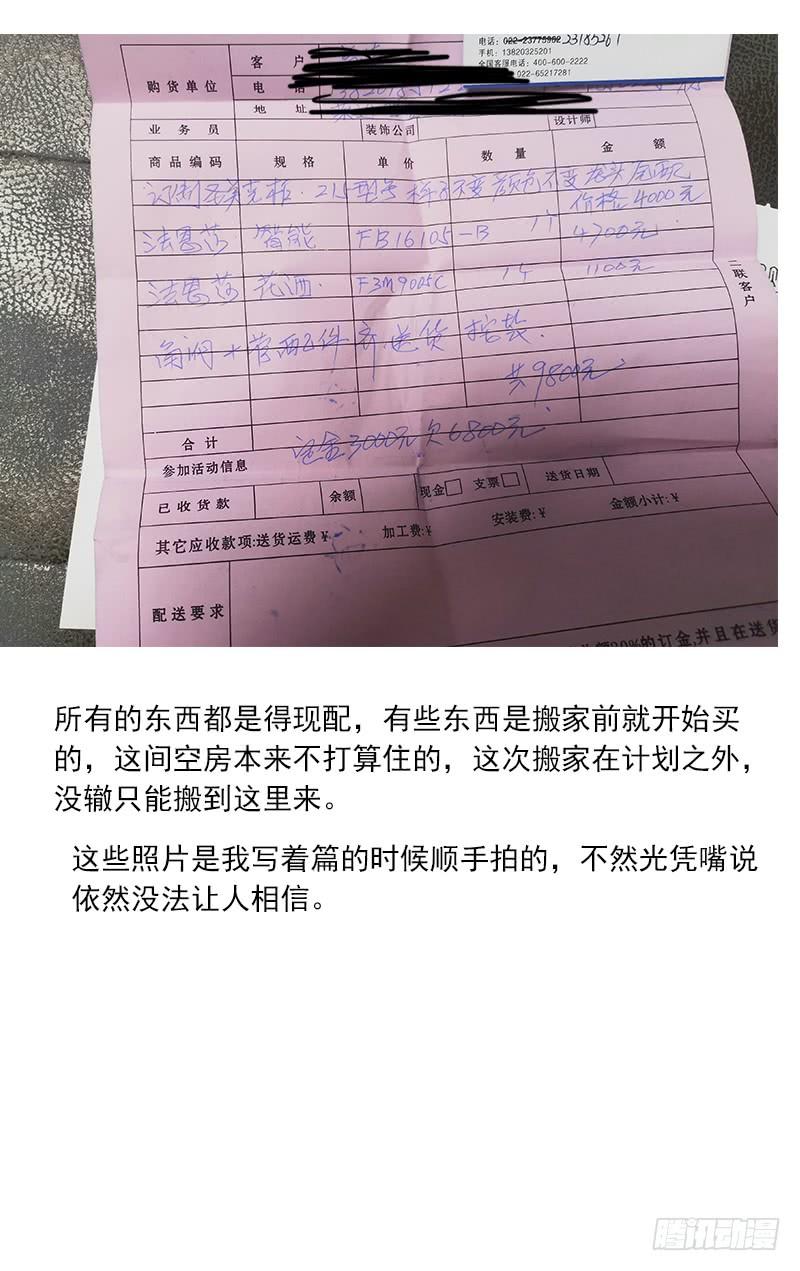 电话：022-23775962 23185261
手机：13820325201
全国客服电话：400-600-2222
022-65217281
购货单位
客户
电话
地址
业务员 装饰公司 设计师
商品编码 规格 单价 数量 金额
215型号 不变颜色不变龙头全配
价格4000元
法恩莎 智能 FB16105-B 1个 4700元
法恩莎 花洒 F3M9005C 1个 1100元
二联客户
角阀+管配件齐送货 安装
共9800元
合计 定金3000元欠6800元
参加活动信息
已收货款 余额 现金 支票 送货日期
其它应收款项:送货运费￥ 加工费:￥ 安装费:￥ 金额小计:￥
配送要求
的订金,并且在送货
所有的东西都是得现配，有些东西是搬家前就开始买
的，这间空房本来不打算住的，这次搬家在计划之外，
没辙只能搬到这里来。
这些照片是我写着篇的时候顺手拍的，不然光凭嘴说
依然没法让人相信。
腾讯动漫